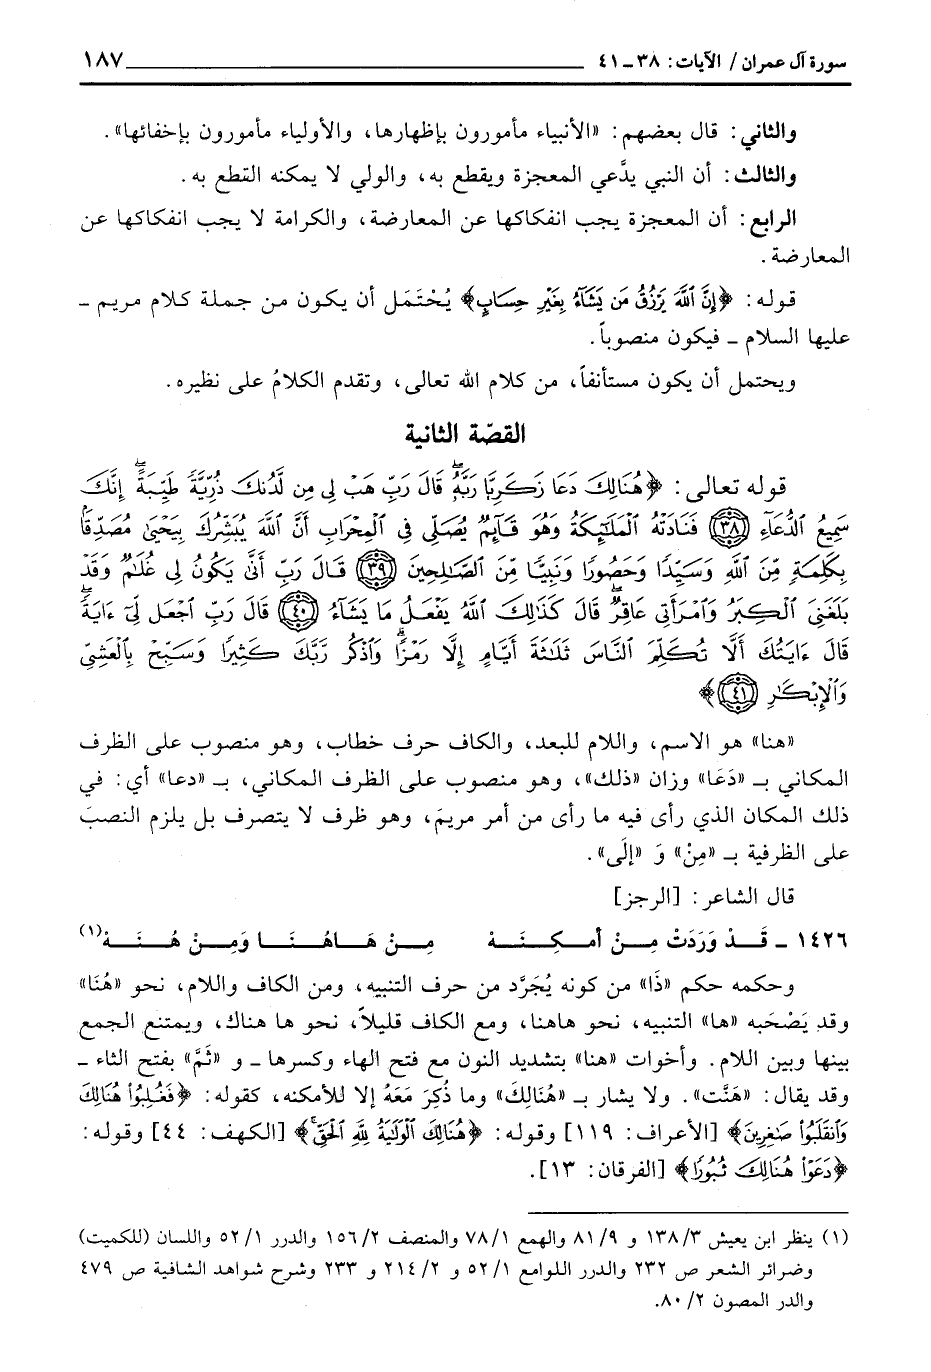 سورة آل عمران / الآيات: ٣٨ ـ ٤١ ١٨٧
والثاني: قال بعضهم: «الأنبياء مأمورون بإظهارها، والأولياء مأمورون بإخفائها».
والثالث: أن النبي يدَّعي المعجزة ويقطع به، والولي لا يمكنه القطع به.
الرابع: أن المعجزة يجب انفكاكها عن المعارضة، والكرامة لا يجب انفكاكها عن
المعارضة.
قوله: ﴿إِنَّ ٱللَّهَ يَرْزُقُ مَن يَشَآءُ بِغَيْرِ حِسَابٍ﴾ يُحْتَمَل أن يكون من جملة كلام مريم ـ
عليها السلام ـ فيكون منصوباً.
ويحتمل أن يكون مستأنفاً، من كلام الله تعالى، وتقدم الكلامُ على نظيره.
القصّة الثانية
قوله تعالى: ﴿هُنَالِكَ دَعَا زَكَرِيَّا رَبَّهُۥۖ قَالَ رَبِّ هَبْ لِى مِن لَّدُنكَ ذُرِّيَّةً طَيِّبَةًۖ إِنَّكَ
سَمِيعُ ٱلدُّعَآءِ ٣٨ فَنَادَتْهُ ٱلْمَلَٰٓئِكَةُ وَهُوَ قَآئِمٌ يُصَلِّى فِى ٱلْمِحْرَابِ أَنَّ ٱللَّهَ يُبَشِّرُكَ بِيَحْيَىٰ مُصَدِّقًۢا
بِكَلِمَةٍ مِّنَ ٱللَّهِ وَسَيِّدًا وَحَصُورًا وَنَبِيًّا مِّنَ ٱلصَّٰلِحِينَ ٣٩ قَالَ رَبِّ أَنَّىٰ يَكُونُ لِى غُلَٰمٌ وَقَدْ
بَلَغَنِىَ ٱلْكِبَرُ وَٱمْرَأَتِى عَاقِرٌۖ قَالَ كَذَٰلِكَ ٱللَّهُ يَفْعَلُ مَا يَشَآءُ ٤٠ قَالَ رَبِّ ٱجْعَل لِّىٓ ءَايَةًۖ
قَالَ ءَايَتُكَ أَلَّا تُكَلِّمَ ٱلنَّاسَ ثَلَٰثَةَ أَيَّامٍ إِلَّا رَمْزًاۗ وَٱذْكُر رَّبَّكَ كَثِيرًا وَسَبِّحْ بِٱلْعَشِىِّ
وَٱلْإِبْكَٰرِ ٤١﴾
«هنا» هو الاسم، واللام للبعد، والكاف حرف خطاب، وهو منصوب على الظرف
المكاني بـ «دَعَا» وزان «ذلك»، وهو منصوب على الظرف المكاني، بـ «دعا» أي: في
ذلك المكان الذي رأى فيه ما رأى من أمر مريمَ، وهو ظرف لا يتصرف بل يلزم النصبَ
على الظرفية بـ «مِنْ» وَ «إلَى».
قال الشاعر: [الرجز]
١٤٢٦ ـ قَــدْ وَرَدَتْ مِــنْ أمــكِــنَــهْ مِــنْ هَــاهُــنَــا وَمِــنْ هُــنَــهْ(١)
وحكمه حكم «ذَا» من كونه يُجَرَّد من حرف التنبيه، ومن الكاف واللام، نحو «هُنَا»
وقد يَصْحَبه «ها» التنبيه، نحو هاهنا، ومع الكاف قليلاً، نحو ها هناك، ويمتنع الجمع
بينها وبين اللام. وأخوات «هنا» بتشديد النون مع فتح الهاء وكسرها ـ و «ثَمَّ» بفتح الثاء ـ
وقد يقال: «هَنَّت». ولا يشار بـ «هُنَالِكَ» وما ذُكِرَ مَعَهُ إلا للأمكنه، كقوله: ﴿فَغُلِبُوا۟ هُنَالِكَ
وَٱنقَلَبُوا۟ صَٰغِرِينَ﴾ [الأعراف: ١١٩] وقوله: ﴿هُنَالِكَ ٱلْوَلَٰيَةُ لِلَّهِ ٱلْحَقِّۚ﴾ [الكهف: ٤٤] وقوله:
﴿دَعَوْا۟ هُنَالِكَ ثُبُورًا﴾ [الفرقان: ١٣].
(١) ينظر ابن يعيش ٣/ ١٣٨ و ٩/ ٨١ والهمع ١/ ٧٨ والمنصف ٢/ ١٥٦ والدرر ١/ ٥٢ واللسان (للكميت)
وضرائر الشعر ص ٢٣٢ والدرر اللوامع ١/ ٥٢ و ٢/ ٢١٤ و ٢٣٣ وشرح شواهد الشافية ص ٤٧٩
والدر المصون ٢/ ٨٠.